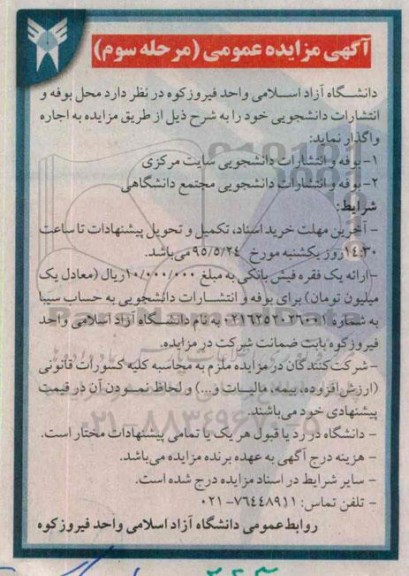 آگهی مزایده عمومی (مرحله سوم)
دانشگاه آزاد اسلامی واحد فیروزکوه در نظر دارد محل بوفه و
انتشارات دانشجویی خود را به شرح ذیل از طریق مزایده به اجاره
واگذار نماید:
۱- بوفه و انتشارات دانشجویی سایت مرکزی
۲- بوفه و انتشارات دانشجویی مجتمع دانشگاهی
شرایط:
- آخرین مهلت خرید اسناد، تکمیل و تحویل پیشنهادات تا ساعت
۱۴:۳۰ روز یکشنبه مورخ ۹۵/۵/۲۴ می‌باشد.
- ارائه یک فقره فیش بانکی به مبلغ ۱۰/۰۰۰/۰۰۰ ریال (معادل یک
میلیون تومان) برای بوفه و انتشارات دانشجویی به حساب سیبا
به شماره به نام دانشگاه آزاد اسلامی واحد
فیروزکوه بابت ضمانت شرکت در مزایده.
- شرکت‌کنندگان در مزایده ملزم به محاسبه کلیه کسورات قانونی
(ارزش افزوده، بیمه، مالیات و...) و لحاظ نمودن آن در قیمت
پیشنهادی خود می‌باشند.
- دانشگاه در رد یا قبول هر یک یا تمامی پیشنهادات مختار است.
- هزینه درج آگهی به عهده برنده مزایده می‌باشد.
- سایر شرایط در اسناد مزایده درج شده است.
- تلفن تماس: ۷۶۴۴۸۹۱۱-۰۲۱
روابط عمومی دانشگاه آزاد اسلامی واحد فیروزکوه
۰۲۱-۸۸۳۴۹۶۷۰-۵